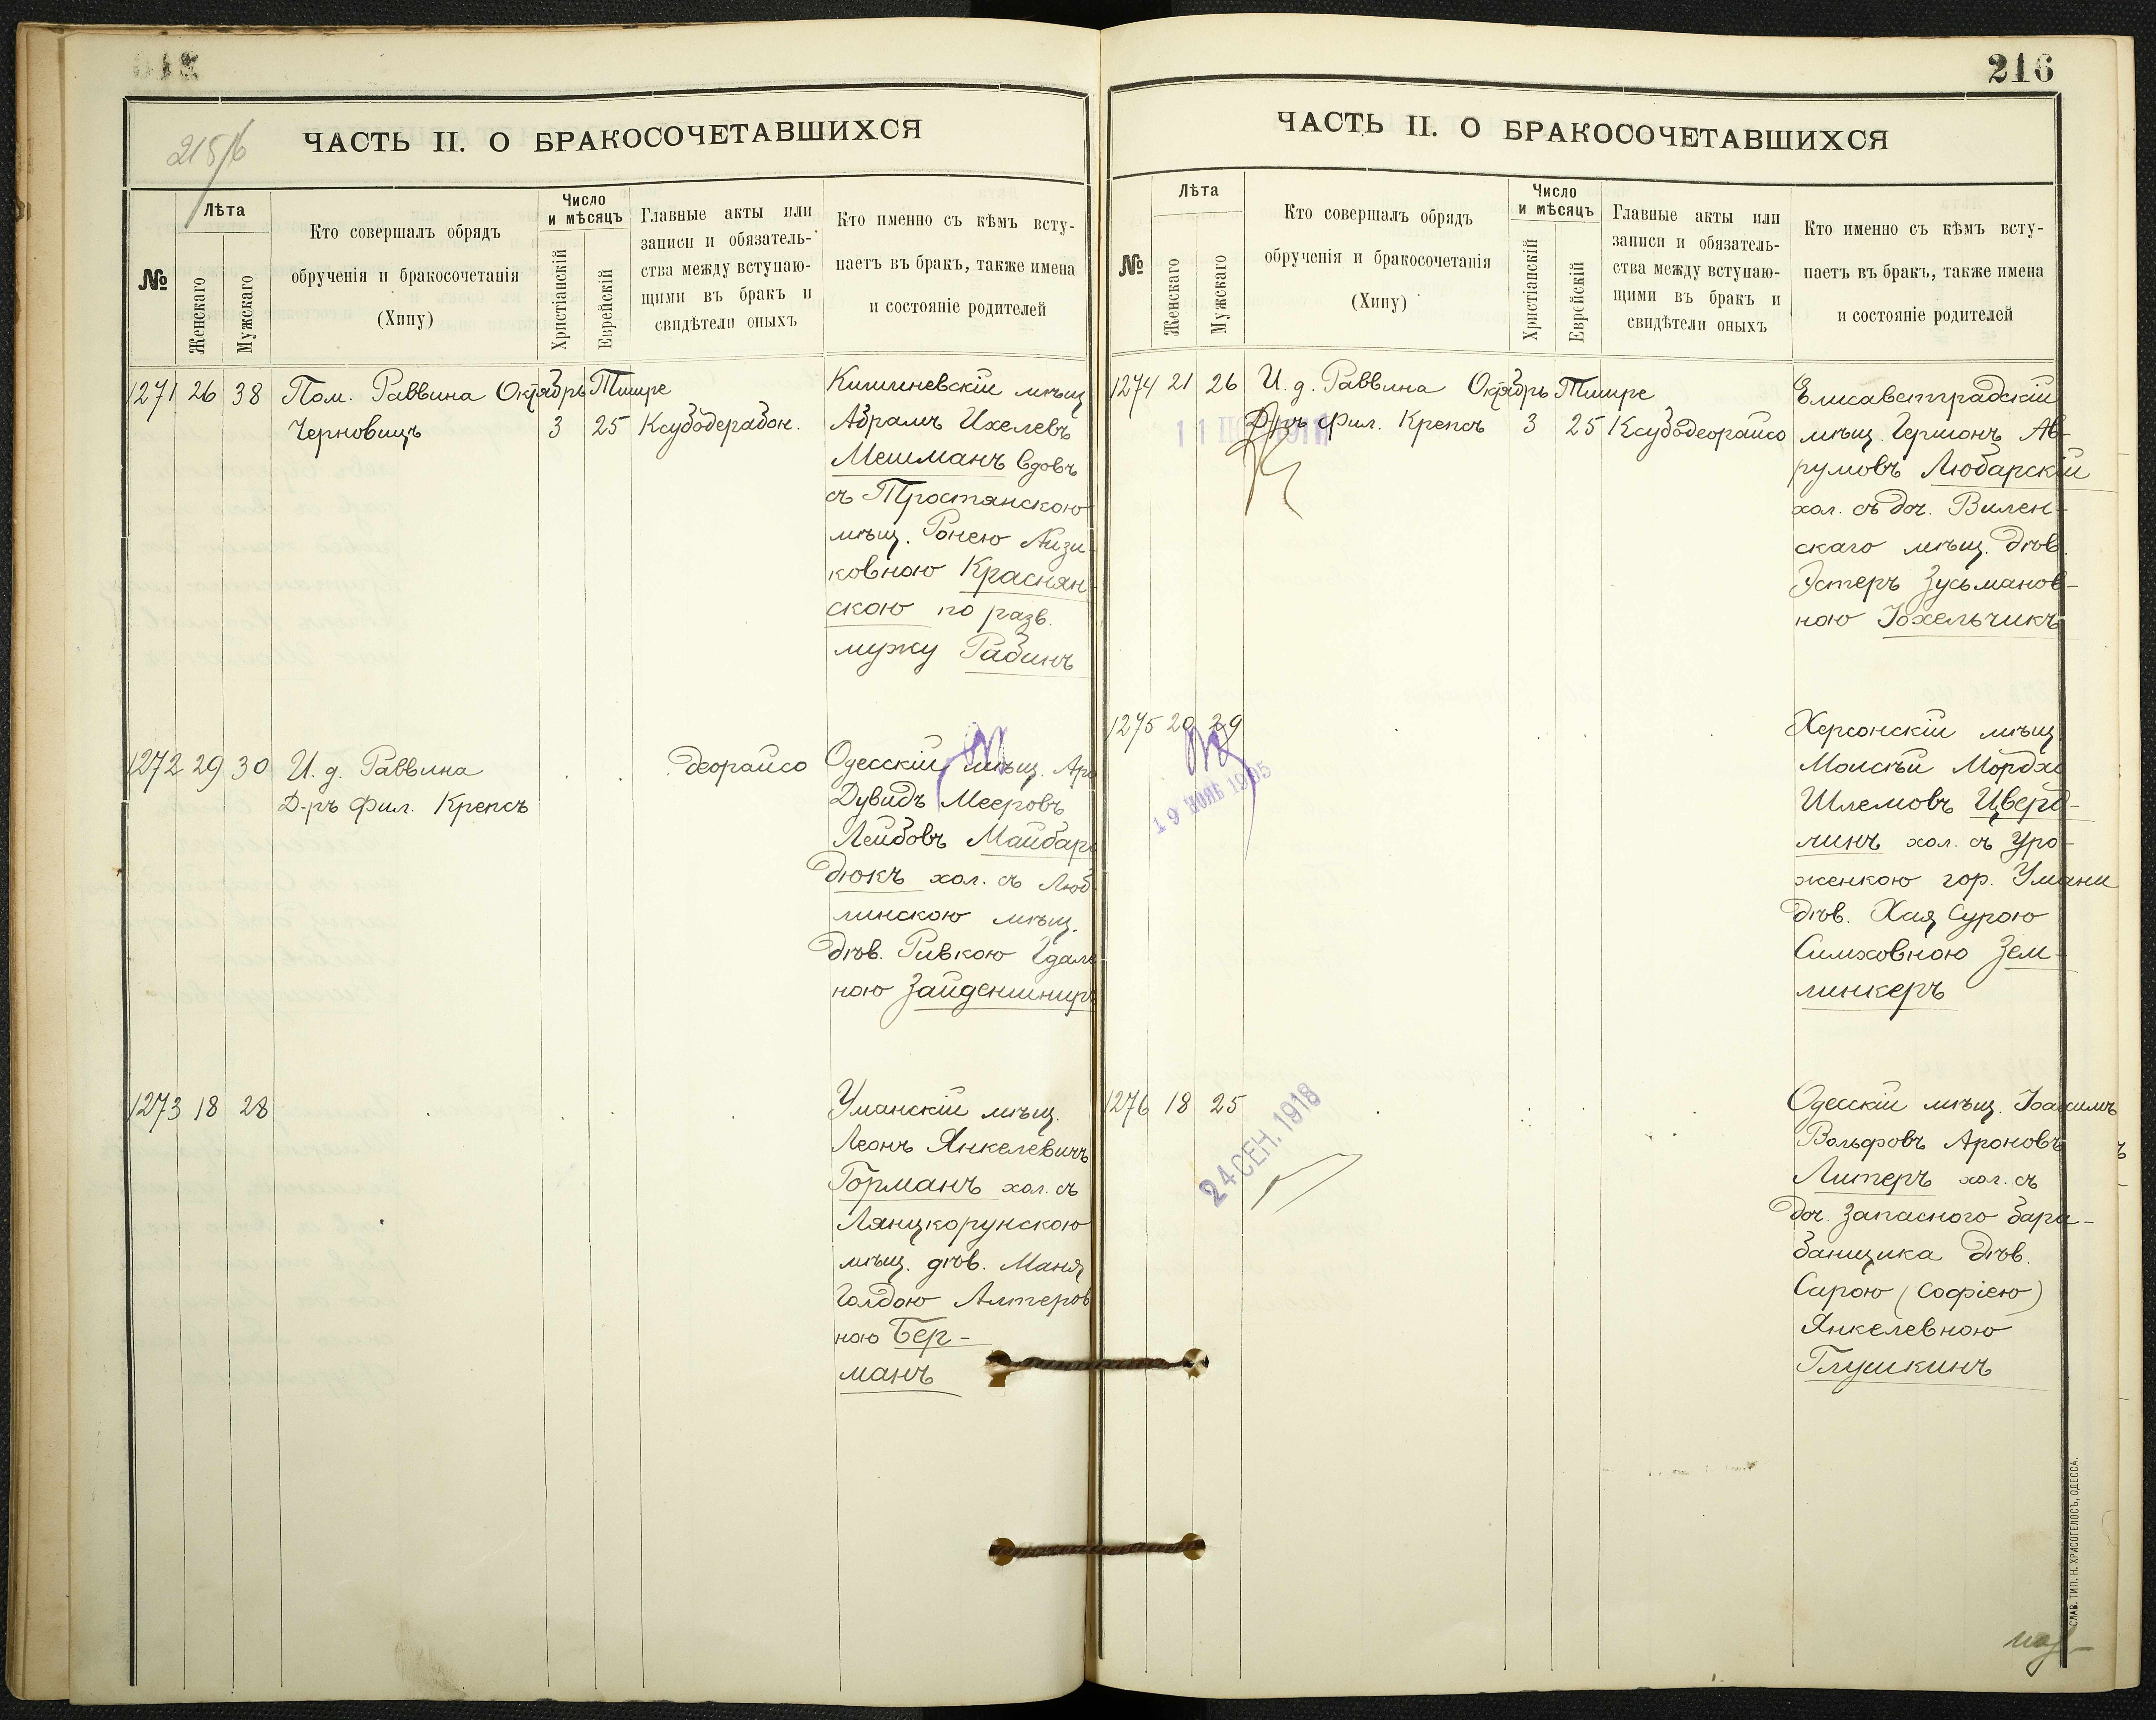 215/б
ЧАСТЬ II. О БРАКОСОЧЕТАВШИХСЯ
№
Лѣта
Женскаго
Мужскаго
Кто совершалъ обрядъ
обрученія и бракосочетанія
(Хипу)
Число
и мѣсяцъ
Христіанскій
Еврейскій
Главные акты или
записи и обязатель-
ства между вступаю-
щими въ бракъ и
свидѣтели оныхъ
Кто именно съ кѣмъ всту-
паетъ въ бракъ, также имена
и состояніе родителей
1271 26 38 Пом. Раввина Октябрь Тишре
Черновицъ 3 25 Ксубодерабон.
Кишиневскій мѣщ
Абрамъ Ихелевъ
Мешманъ вдовъ
съ Тростянскою
мѣщ. Ронею Айзи-
ковною Краснян-
скою по разв.
мужу Рабинъ
1272 29 30 И. д. Раввина деорайсо
Д-ръ фил. Крепсъ
Одесскій мѣщ. Аро
Дувидъ Мееровъ
Лейбовъ Майбар
дюкъ хол. съ Люб
линскою мѣщ.
дѣв. Ривкою Гдале
ною Зайденшнир
1273 18 28
Уманскій мѣщ.
Леонъ Янкелевичъ
Горманъ хол. съ
Лянцкорунскою
мѣщ. дѣв. Маня
Голдою Алтеров
ною Бер-
манъ
216
ЧАСТЬ II. О БРАКОСОЧЕТАВШИХСЯ
№
Лѣта
Женскаго
Мужскаго
Кто совершалъ обрядъ
обрученія и бракосочетанія
(Хипу)
Число
и мѣсяцъ
Христіанскій
Еврейскій
Главные акты или
записи и обязатель-
ства между вступаю-
щими въ бракъ и
свидѣтели оныхъ
Кто именно съ кѣмъ всту-
паетъ въ бракъ, также имена
и состояніе родителей
1274 21 26 И. д. Раввина Октябрь Тишре
Д-ръ фил. Крепсъ 3 25 Ксубодеорайсо
Елисаветградскій
мѣщ. Гершонъ Ав-
румовъ Любарскій
хол. съ доч. Вилен-
скаго мѣщ. дѣв.
Эстеръ Зусьманов-
ною Іохельчикъ
1275 20 29
19 НОЯБ 1905
Херсонскій мѣщ
Моисѣй Мордхо
Шлемовъ Цверд-
линъ хол. съ уро-
женкою гор. Умани
дѣв. Хая Сурою
Симховною Зем-
линкеръ
1276 18 25
24 СЕН. 1918
Одесскій мѣщ. Іоахимъ
Вольфовъ Ароновъ
Литеръ хол. съ
доч. запасного бара-
банщика дѣв.
Сарою (Софіею)
Янкелевною
Глушкинъ
СЛАВ. ТИП. Н. ХРИСОГЕЛОСЪ, ОДЕССА.